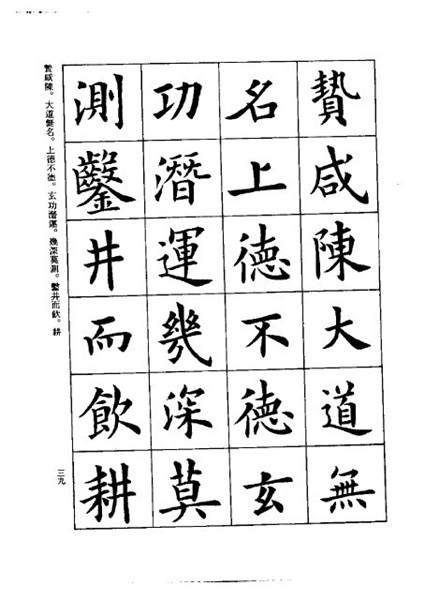 贄咸陳大道無
名上德不德玄
功潛運幾深莫
測鑿井而飲耕
贄咸陳。大道無名。上德不德。玄功潛運。幾深莫測。鑿井而飲。耕
三九